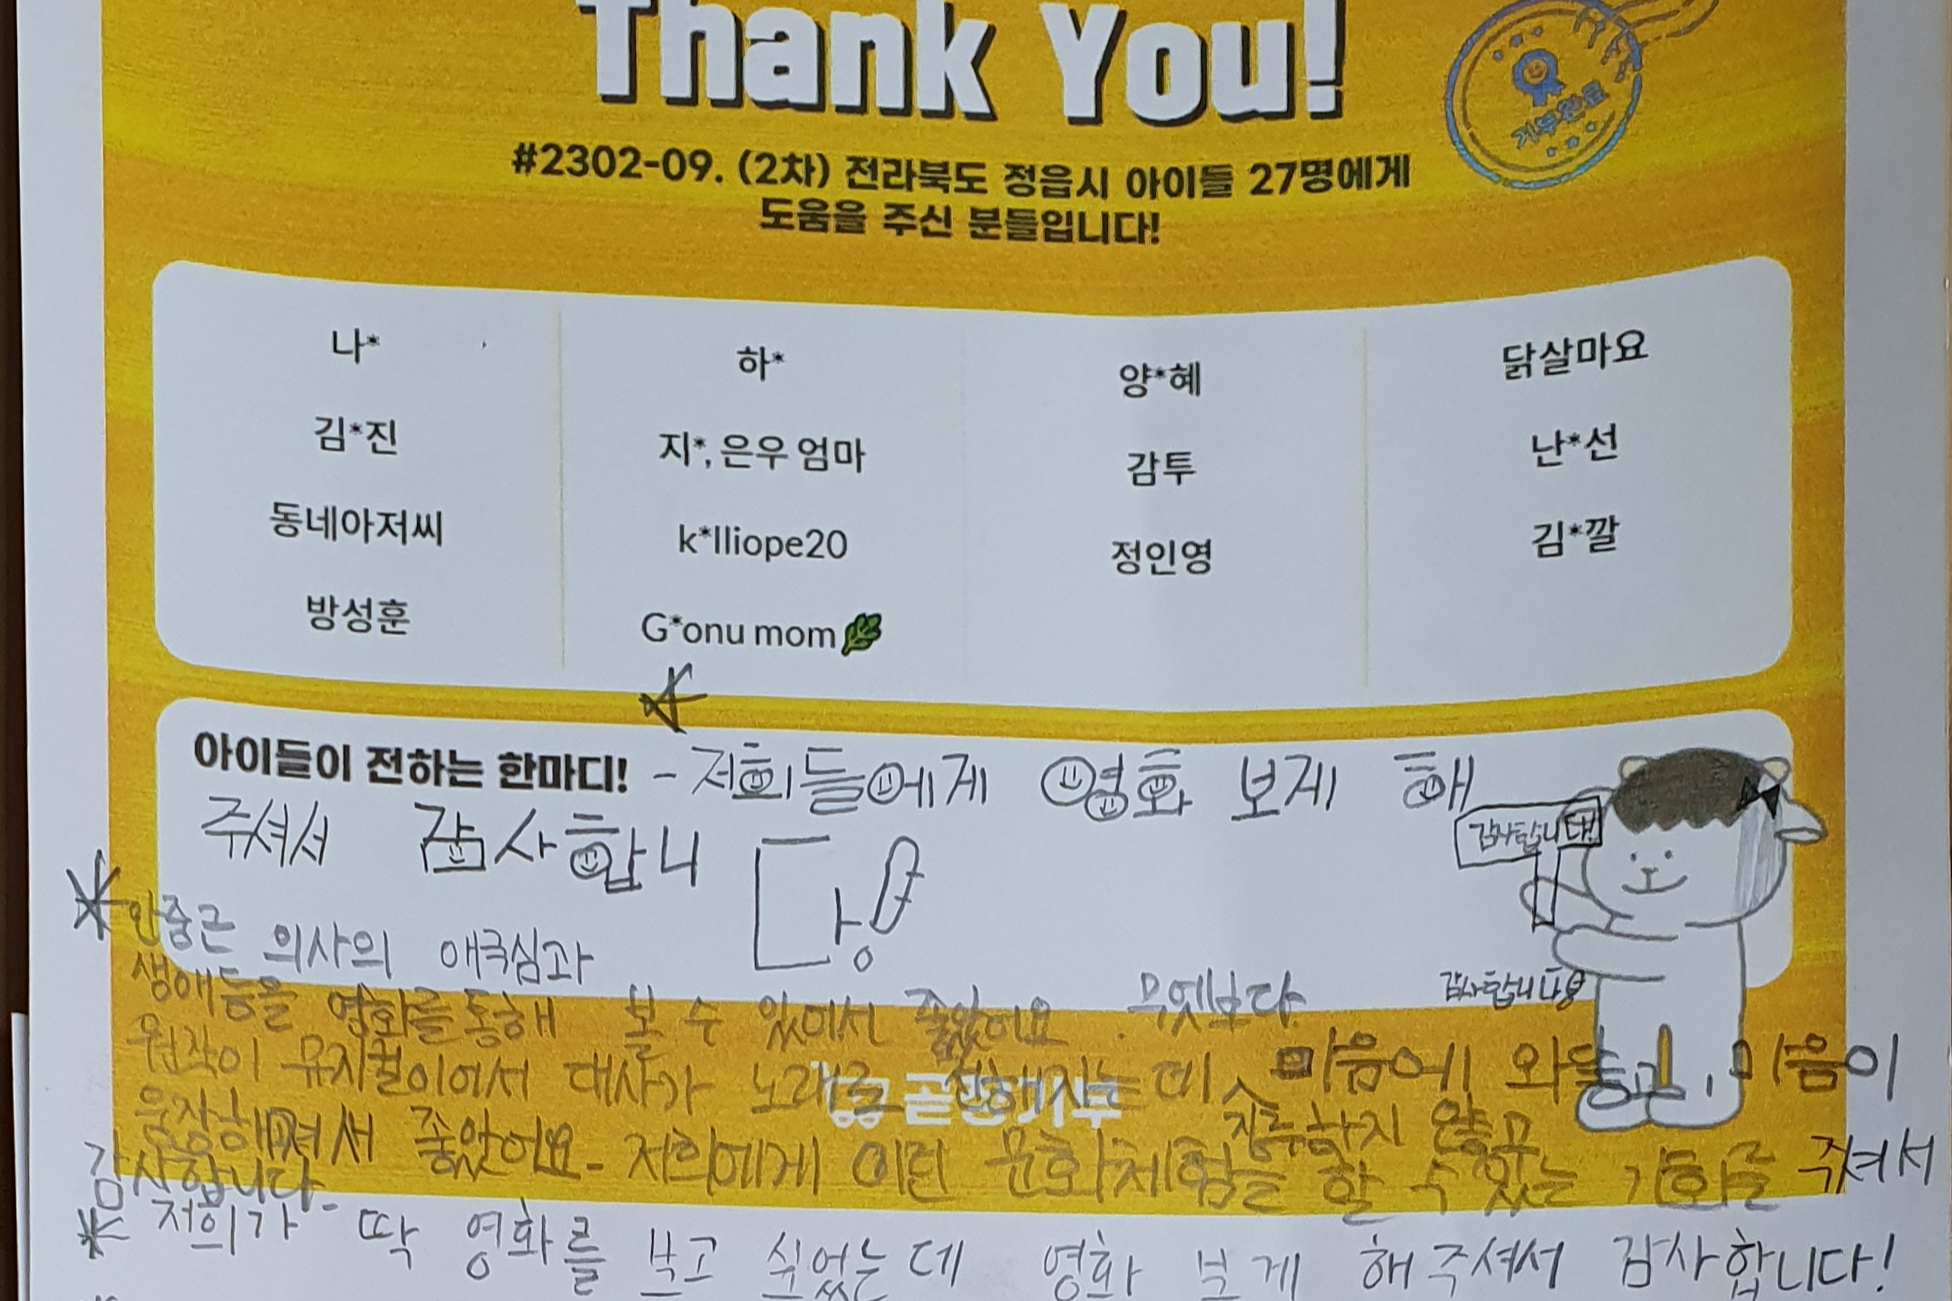 Thank You!
기부완료
#2302-09. (2차) 전라북도 정읍시 아이들 27명에게
도움을 주신 분들입니다!
나* 하* 양*혜 닭살마요
김*진 지*, 은우 엄마 감투 난*선
동네아저씨 k*lliope20 정인영 김*깔
방성훈 G*onu mom
아이들이 전하는 한마디! - 저희들에게 영화 보게 해
주셔서 감사합니당!
감사합니다!
안중근 의사의 애국심과
감사합니다용
생애들을 영화를 통해 볼 수 있어서 좋았어요. 무엇보다
원작이 뮤지컬이어서 대사가 노래로 전해지는데 마음에 와닿고, 마음이
지루하지 않고
웅장해져서 좋았어요- 저희에게 이런 문화체험을 할 수 있는 기회를 주셔서
감사합니다-
곧장기부
저희가 딱 영화를 보고 싶었는데 영화 보게 해주셔서 감사합니다!